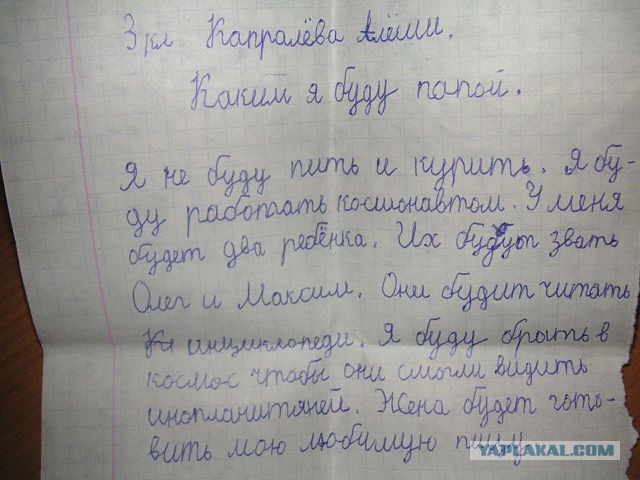 3 кл Капралёва Алёши.
Каким я буду папой.
Я не буду пить и курить. Я бу-
ду работать космонавтом. У меня
будет два ребёнка. Их будут звать
Олег и Максим. Они будит читать
инциклопеди. Я буду брать в
космос чтобы они смогли видить
инопланитяней. Жена будет гото-
вить мою любимую пиццу
YAPLAKAL.COM